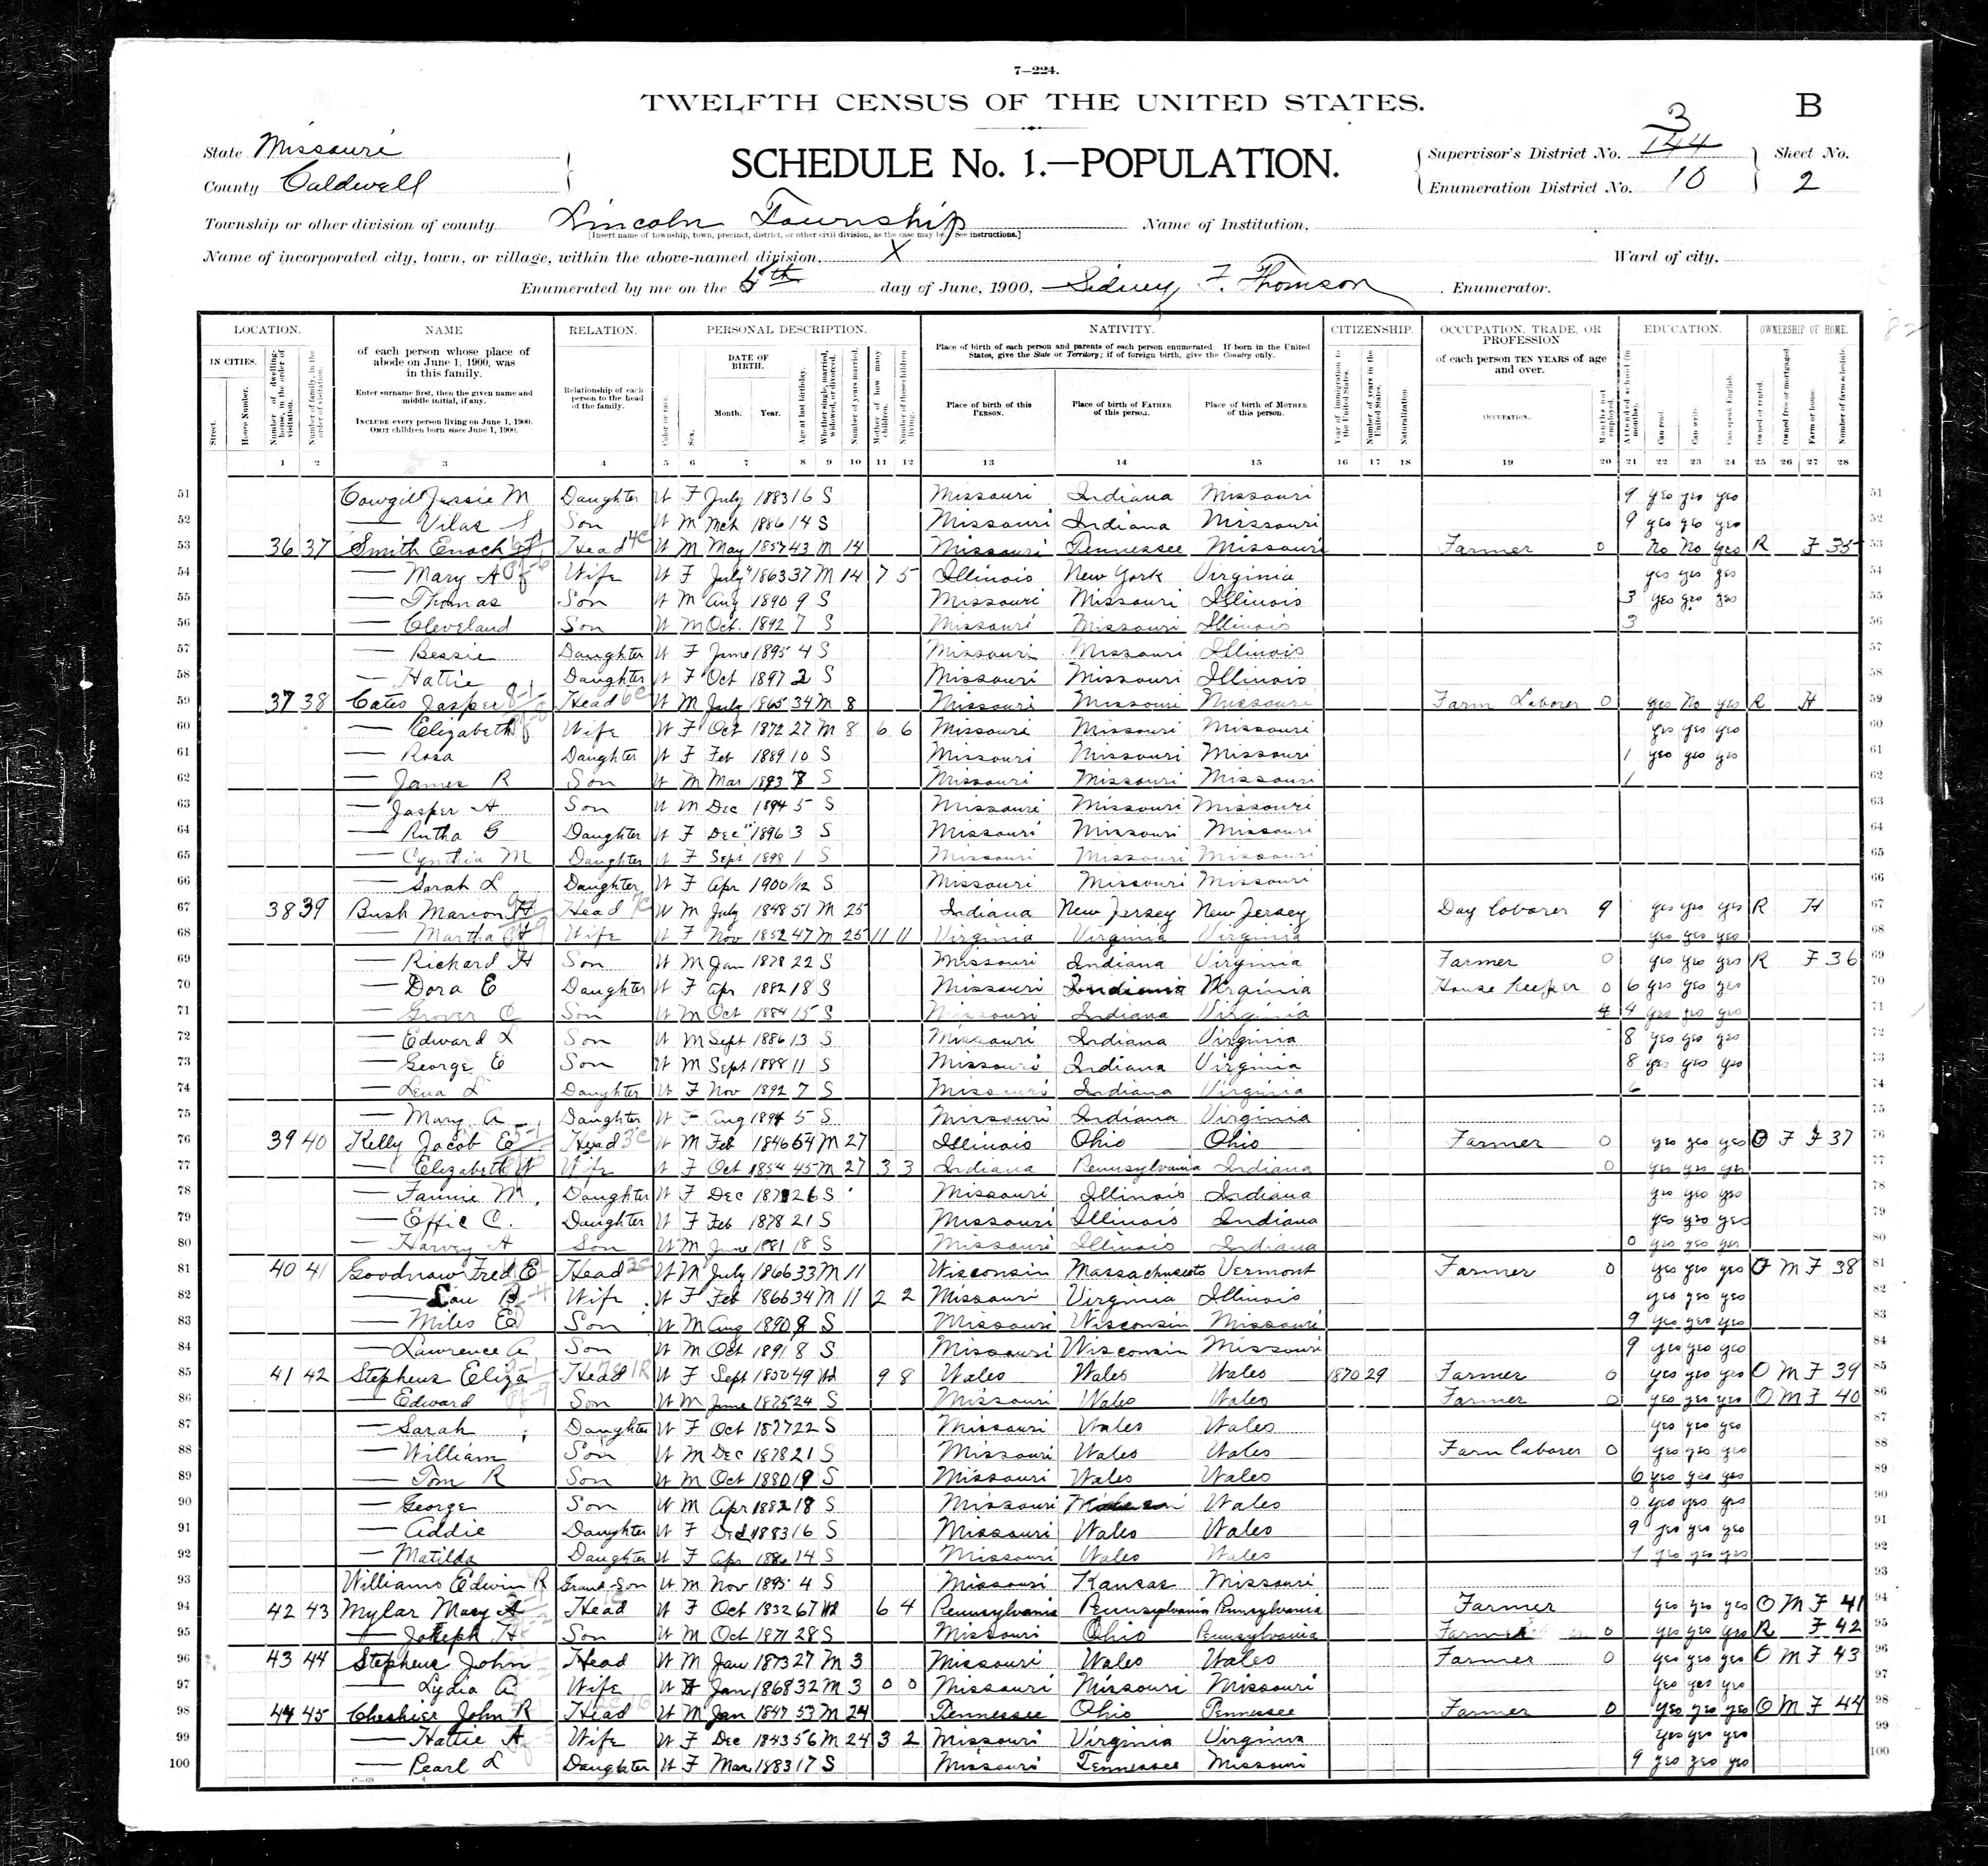 7—224.
TWELFTH CENSUS OF THE UNITED STATES.
B
State Missouri
County Caldwell
SCHEDULE No. 1.—POPULATION.
Supervisor's District No. 3 144
Enumeration District No. 10
Sheet No. 2
Township or other division of county Lincoln Township
[Insert name of township, town, precinct, district, or other civil division, as the case may be. See instructions.]
Name of Institution,
Name of incorporated city, town, or village, within the above-named division, X
Ward of city,
Enumerated by me on the 5th day of June, 1900, Sidney F. Thomson, Enumerator.
LOCATION. NAME RELATION. PERSONAL DESCRIPTION. NATIVITY. CITIZENSHIP. OCCUPATION, TRADE, OR PROFESSION EDUCATION. OWNERSHIP OF HOME.
IN CITIES. Street. House Number. Number of dwelling-house, in the order of visitation. Number of family, in the order of visitation.
of each person whose place of abode on June 1, 1900, was in this family.
Enter surname first, then the given name and middle initial, if any.
INCLUDE every person living on June 1, 1900. OMIT children born since June 1, 1900.
Relationship of each person to the head of the family.
Color or race. Sex. DATE OF BIRTH. Month. Year. Age at last birthday. Whether single, married, widowed, or divorced. Number of years married. Mother of how many children. Number of these children living.
Place of birth of each person and parents of each person enumerated. If born in the United States, give the State or Territory; if of foreign birth, give the Country only.
Place of birth of this PERSON. Place of birth of FATHER of this person. Place of birth of MOTHER of this person.
Year of immigration to the United States. Number of years in the United States. Naturalization.
of each person TEN YEARS of age and over.
OCCUPATION. Months not employed.
Attended school (in months). Can read. Can write. Can speak English.
Owned or rented. Owned free or mortgaged. Farm or house. Number of farm schedule.
1 2 3 4 5 6 7 8 9 10 11 12 13 14 15 16 17 18 19 20 21 22 23 24 25 26 27 28
51 Cowgill Jessie M Daughter W F July 1883 16 S Missouri Indiana Missouri 9 yes yes yes 51
52 — Vilas S Son W M Mch 1886 14 S Missouri Indiana Missouri 9 yes yes yes 52
53 36 37 Smith Enoch Head W M May 1857 43 M 14 Missouri Tennessee Missouri Farmer 0 No No yes R F 35 53
54 — Mary A Wife W F July 1863 37 M 14 7 5 Illinois New York Virginia yes yes yes 54
55 — Thomas Son W M Aug 1890 9 S Missouri Missouri Illinois 3 yes yes yes 55
56 — Cleveland Son W M Oct. 1892 7 S Missouri Missouri Illinois 3 56
57 — Bessie Daughter W F June 1895 4 S Missouri Missouri Illinois 57
58 — Hattie Daughter W F Oct 1897 2 S Missouri Missouri Illinois 58
59 37 38 Cates Jasper Head W M July 1865 34 M 8 Missouri Missouri Missouri Farm Laborer 0 yes No yes R H 59
60 — Elizabeth Wife W F Oct 1872 27 M 8 6 6 Missouri Missouri Missouri yes yes yes 60
61 — Rosa Daughter W F Feb 1889 10 S Missouri Missouri Missouri 1 yes yes yes 61
62 — James R Son W M Mar 1893 S Missouri Missouri Missouri 1 62
63 — Jasper A Son W M Dec 1894 5 S Missouri Missouri Missouri 63
64 — Rutha G Daughter W F Dec 1896 3 S Missouri Missouri Missouri 64
65 — Cynthia M Daughter W F Sept 1898 1 S Missouri Missouri Missouri 65
66 — Sarah L Daughter W F Apr 1900 1/12 S Missouri Missouri Missouri 66
67 38 39 Bush Marion H Head W M July 1848 51 M 25 Indiana New Jersey New Jersey Day laborer 9 yes yes yes R H 67
68 — Martha Wife W F Nov 1852 47 M 25 11 11 Virginia Virginia Virginia yes yes yes 68
69 — Richard H Son W M Jan 1878 22 S Missouri Indiana Virginia Farmer 0 yes yes yes R F 36 69
70 — Dora E Daughter W F Apr 1882 18 S Missouri Indiana Virginia House keeper 0 6 yes yes yes 70
71 — Grover C Son W M Oct 1884 15 S Missouri Indiana Virginia 4 4 yes yes yes 71
72 — Edward L Son W M Sept 1886 13 S Missouri Indiana Virginia 8 yes yes yes 72
73 — George E Son W M Sept 1888 11 S Missouri Indiana Virginia 8 yes yes yes 73
74 — Lena L Daughter W F Nov 1892 7 S Missouri Indiana Virginia 6 74
75 — Mary A Daughter W F Aug 1894 5 S Missouri Indiana Virginia 75
76 39 40 Kelly Jacob E Head W M Feb 1846 54 M 27 Illinois Ohio Ohio Farmer 0 yes yes yes O F F 37 76
77 — Elizabeth Wife W F Oct 1854 45 M 27 3 3 Indiana Pennsylvania Indiana 0 yes yes yes 77
78 — Fannie M. Daughter W F Dec 26 S Missouri Illinois Indiana yes yes yes 78
79 — Effie C. Daughter W F Feb 1878 21 S Missouri Illinois Indiana yes yes yes 79
80 — Harvey A Son W M June 1881 18 S Missouri Illinois Indiana 0 yes yes yes 80
81 40 41 Goodnow Fred E Head W M July 1866 33 M 11 Wisconsin Massachusets Vermont Farmer 0 yes yes yes O M F 38 81
82 — Lou B Wife W F Feb 1866 34 M 11 2 2 Missouri Virginia Illinois yes yes yes 82
83 — Miles E Son W M Aug 1890 9 S Missouri Wisconsin Missouri 9 yes yes yes 83
84 — Lawrence A Son W M Oct 1891 8 S Missouri Wisconsin Missouri 9 yes yes yes 84
85 41 42 Stephens Eliza Head W F Sept 1850 49 Wd 9 8 Wales Wales Wales 1870 29 Farmer 0 yes yes yes O M F 39 85
86 — Edward Son W M June 1875 24 S Missouri Wales Wales Farmer 0 yes yes yes O M F 40 86
87 — Sarah Daughter W F Oct 1877 22 S Missouri Wales Wales yes yes yes 87
88 — William Son W M Dec 1878 21 S Missouri Wales Wales Farm laborer 0 yes yes yes 88
89 — Tom R Son W M Oct 1880 19 S Missouri Wales Wales 6 yes yes yes 89
90 — George Son W M Apr 1882 18 S Missouri Wales 0 yes yes yes 90
91 — Addie Daughter W F Dec 1883 16 S Missouri Wales Wales 9 yes yes yes 91
92 — Matilda Daughter W F Apr 1886 14 S Missouri Wales Wales 9 yes yes yes 92
93 Williams Edwin R Grand Son W M Nov 1895 4 S Missouri Kansas Missouri 93
94 42 43 Mylar Mary A Head W F Oct 1832 67 Wd 6 4 Pennsylvania Pennsylvania Pennsylvania Farmer yes yes yes O M F 41 94
95 — Joseph H Son W M Oct 1871 28 S Missouri Ohio Pennsylvania Farmer 0 yes yes yes R F 42 95
96 43 44 Stephens John Head W M Jan 1873 27 M 3 Missouri Wales Wales Farmer 0 yes yes yes O M F 43 96
97 — Lydia A Wife W F Jan 1868 32 M 3 0 0 Missouri Missouri Missouri yes yes yes 97
98 44 45 Cheshier John R Head W M Jan 1847 53 M 24 Tennessee Ohio Tennessee Farmer 0 yes yes yes O M F 44 98
99 — Hattie A Wife W F Dec 1843 56 M 24 3 2 Missouri Virginia Virginia yes yes yes 99
100 — Pearl L Daughter W F Mar 1883 17 S Missouri Tennessee Missouri 9 yes yes yes 100